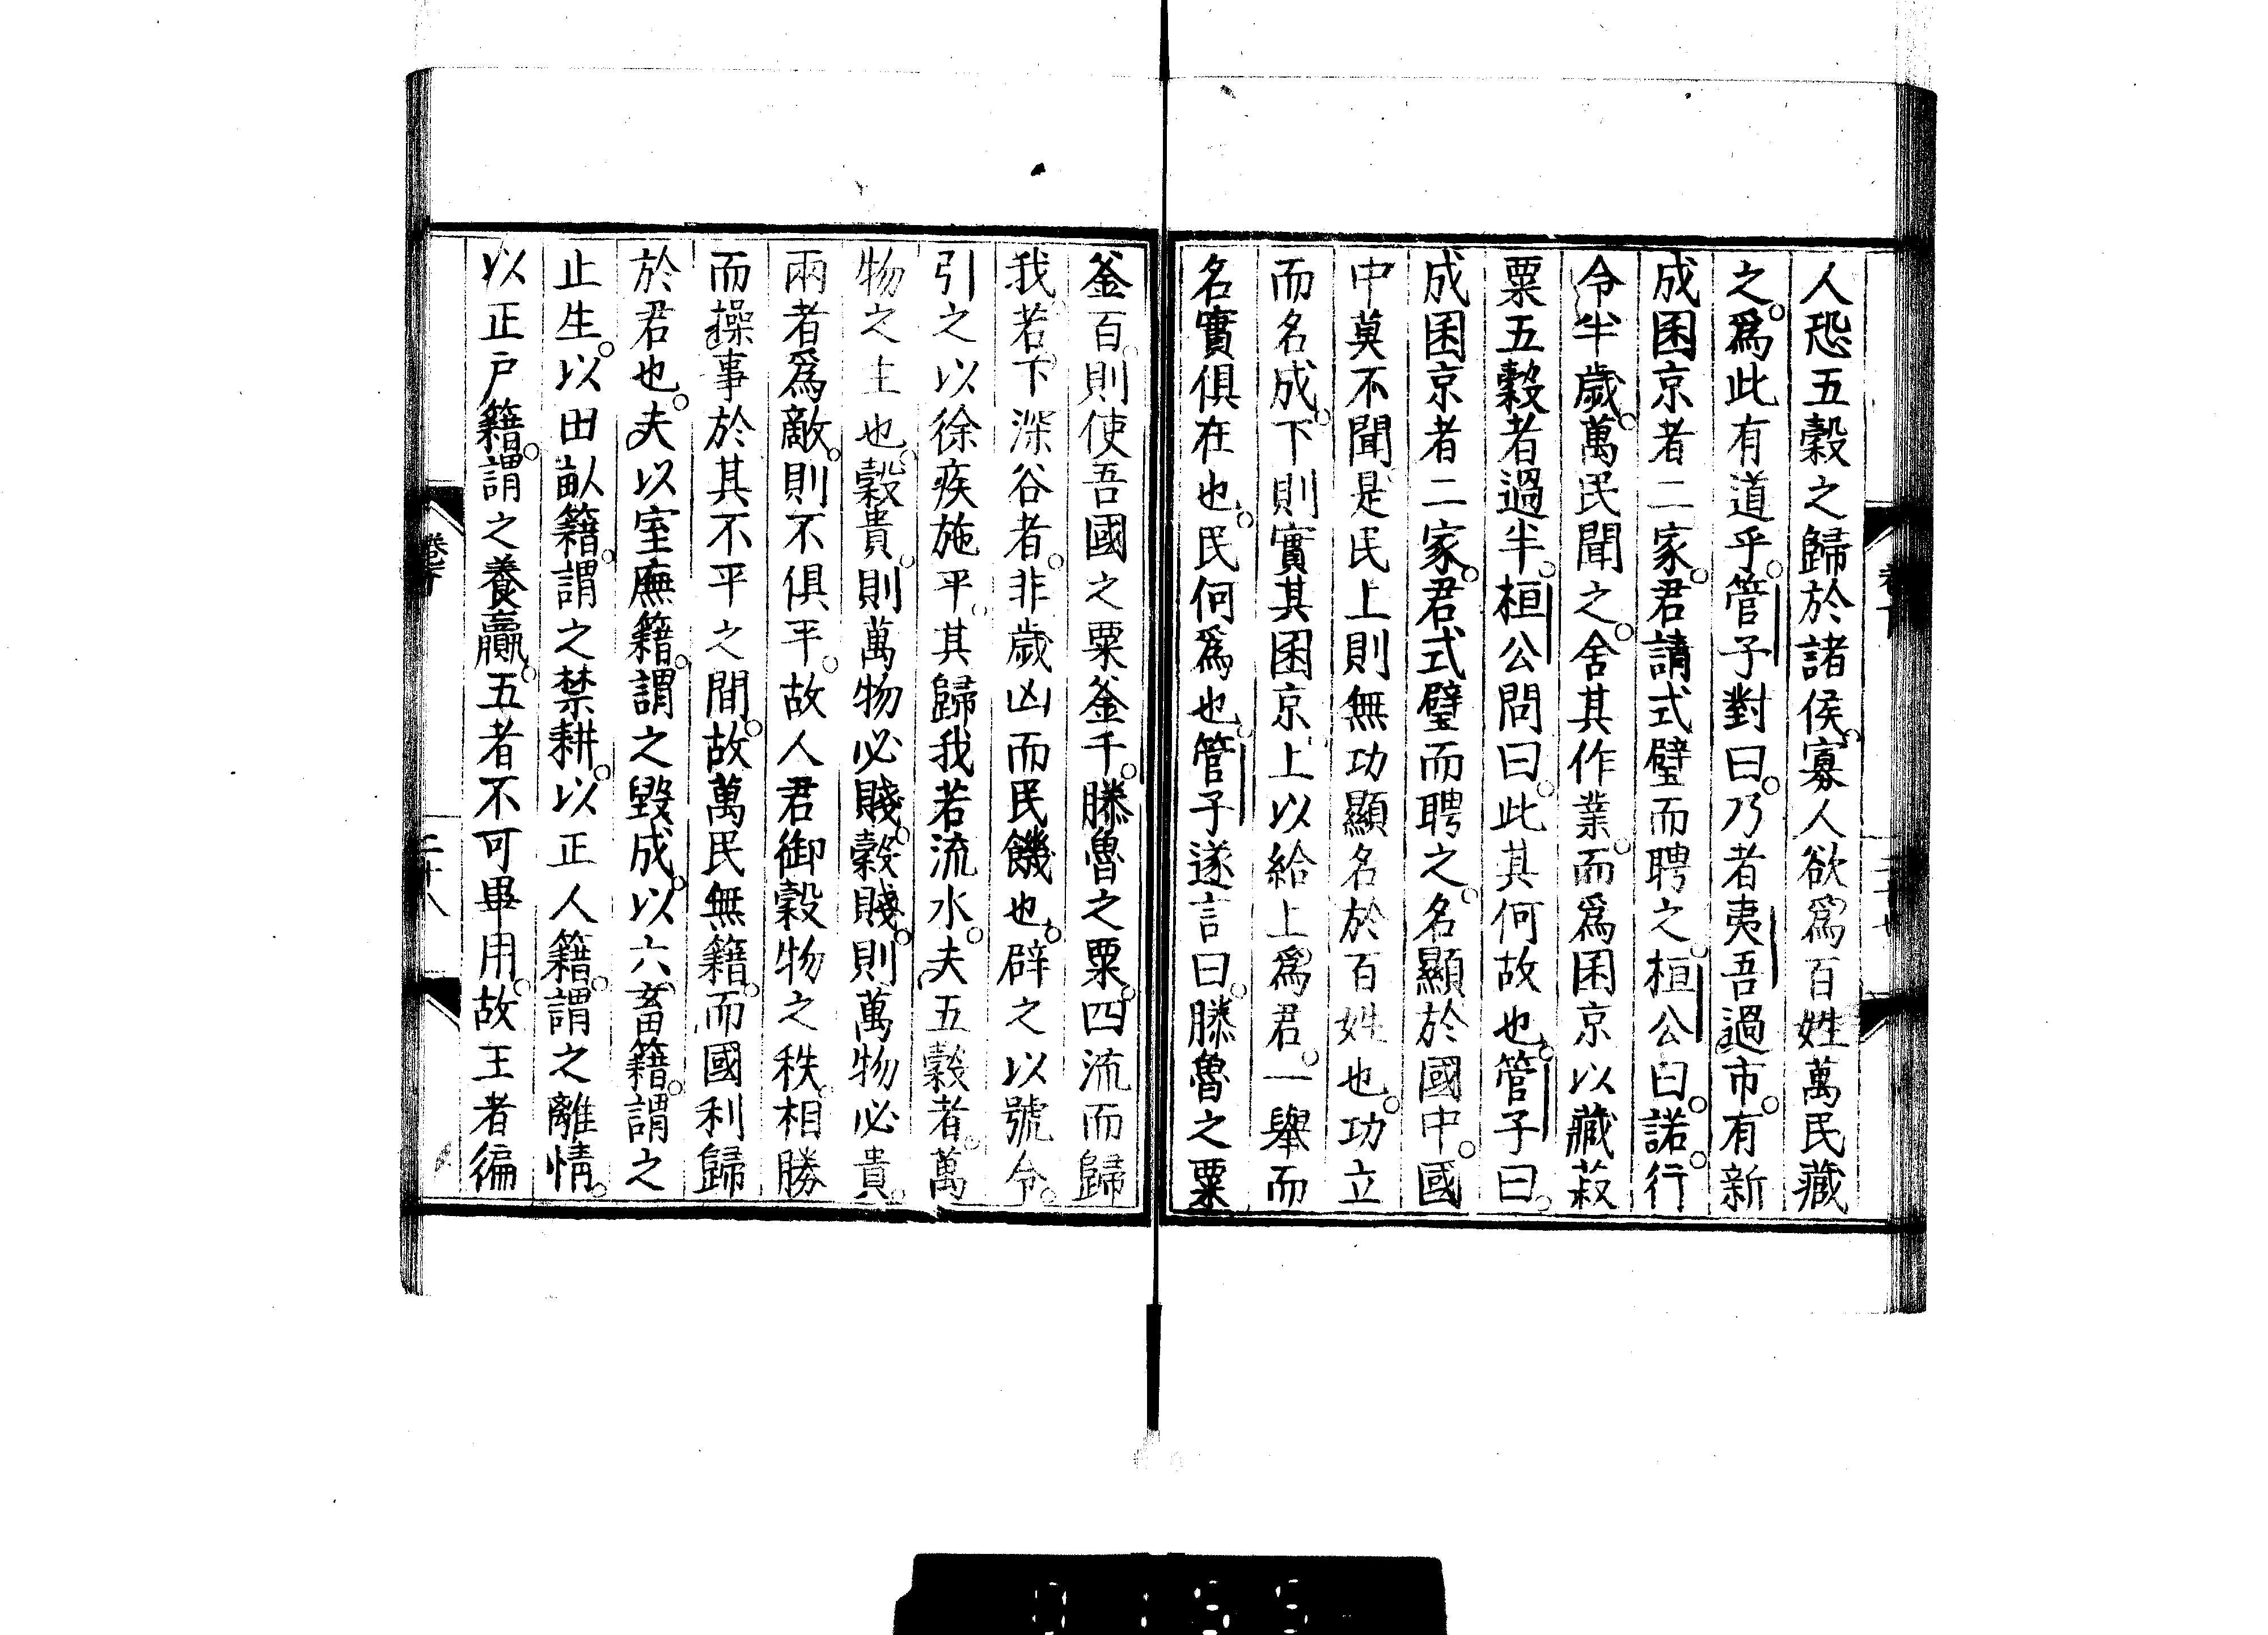 人恐五穀之歸於諸侯寡人欲爲百姓萬民藏
之爲此有道乎管子對曰乃者夷吾過市有新
成囷京者二家君請式璧而聘之桓公曰諾行
令半歲萬民聞之舍其作業而爲囷京以藏菽
粟五穀者過半桓公問曰此其何故也管子曰
成囷京者二家君式璧而聘之名顯於國中國
中莫不聞是民上則無功顯名於百姓也功立
而名成下則實其囷京上以給上爲君一舉而
名實俱在也民何爲也管子遂言曰滕魯之粟
釜百則使吾國之粟釜千滕魯之粟四流而歸
我若下深谷者非歲凶而民饑也辟之以號令
引之以徐疾施平其歸我若流水夫五穀者萬
物之主也穀貴則萬物必賤穀賤則萬物必貴
兩者爲敵則不俱平故人君御穀物之秩相勝
而操事於其不平之間故萬民無籍而國利歸
於君也夫以室廡籍謂之毀成以六畜籍謂之
止生以田畝籍謂之禁耕以正人籍謂之離情
以正戶籍謂之養贏五者不可畢用故王者徧